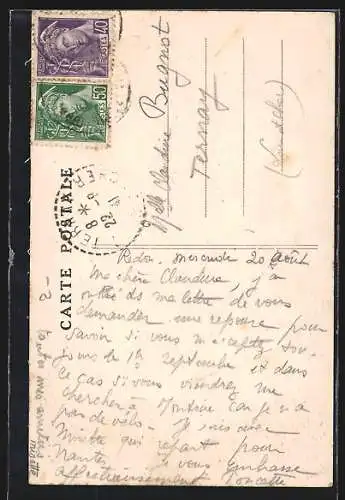 40
POSTES
50
POSTES
CARTE POSTALE
Melle Claudine Bugnot
Ternay
Redon, mercredi 20 Août
Ma chère Claudine, j'ai
oublié ds ma lettre de vous
demander une réponse pour
savoir si vous m'acceptez tou-
jours le 1er septembre et dans
ce cas si vous viendrez me
chercher à Montoire car je n'ai
pas de vélo. Je suis avec
Minette qui repart pour
Nantes. Je vous embrasse
affectueusement
toutes mes amitiés